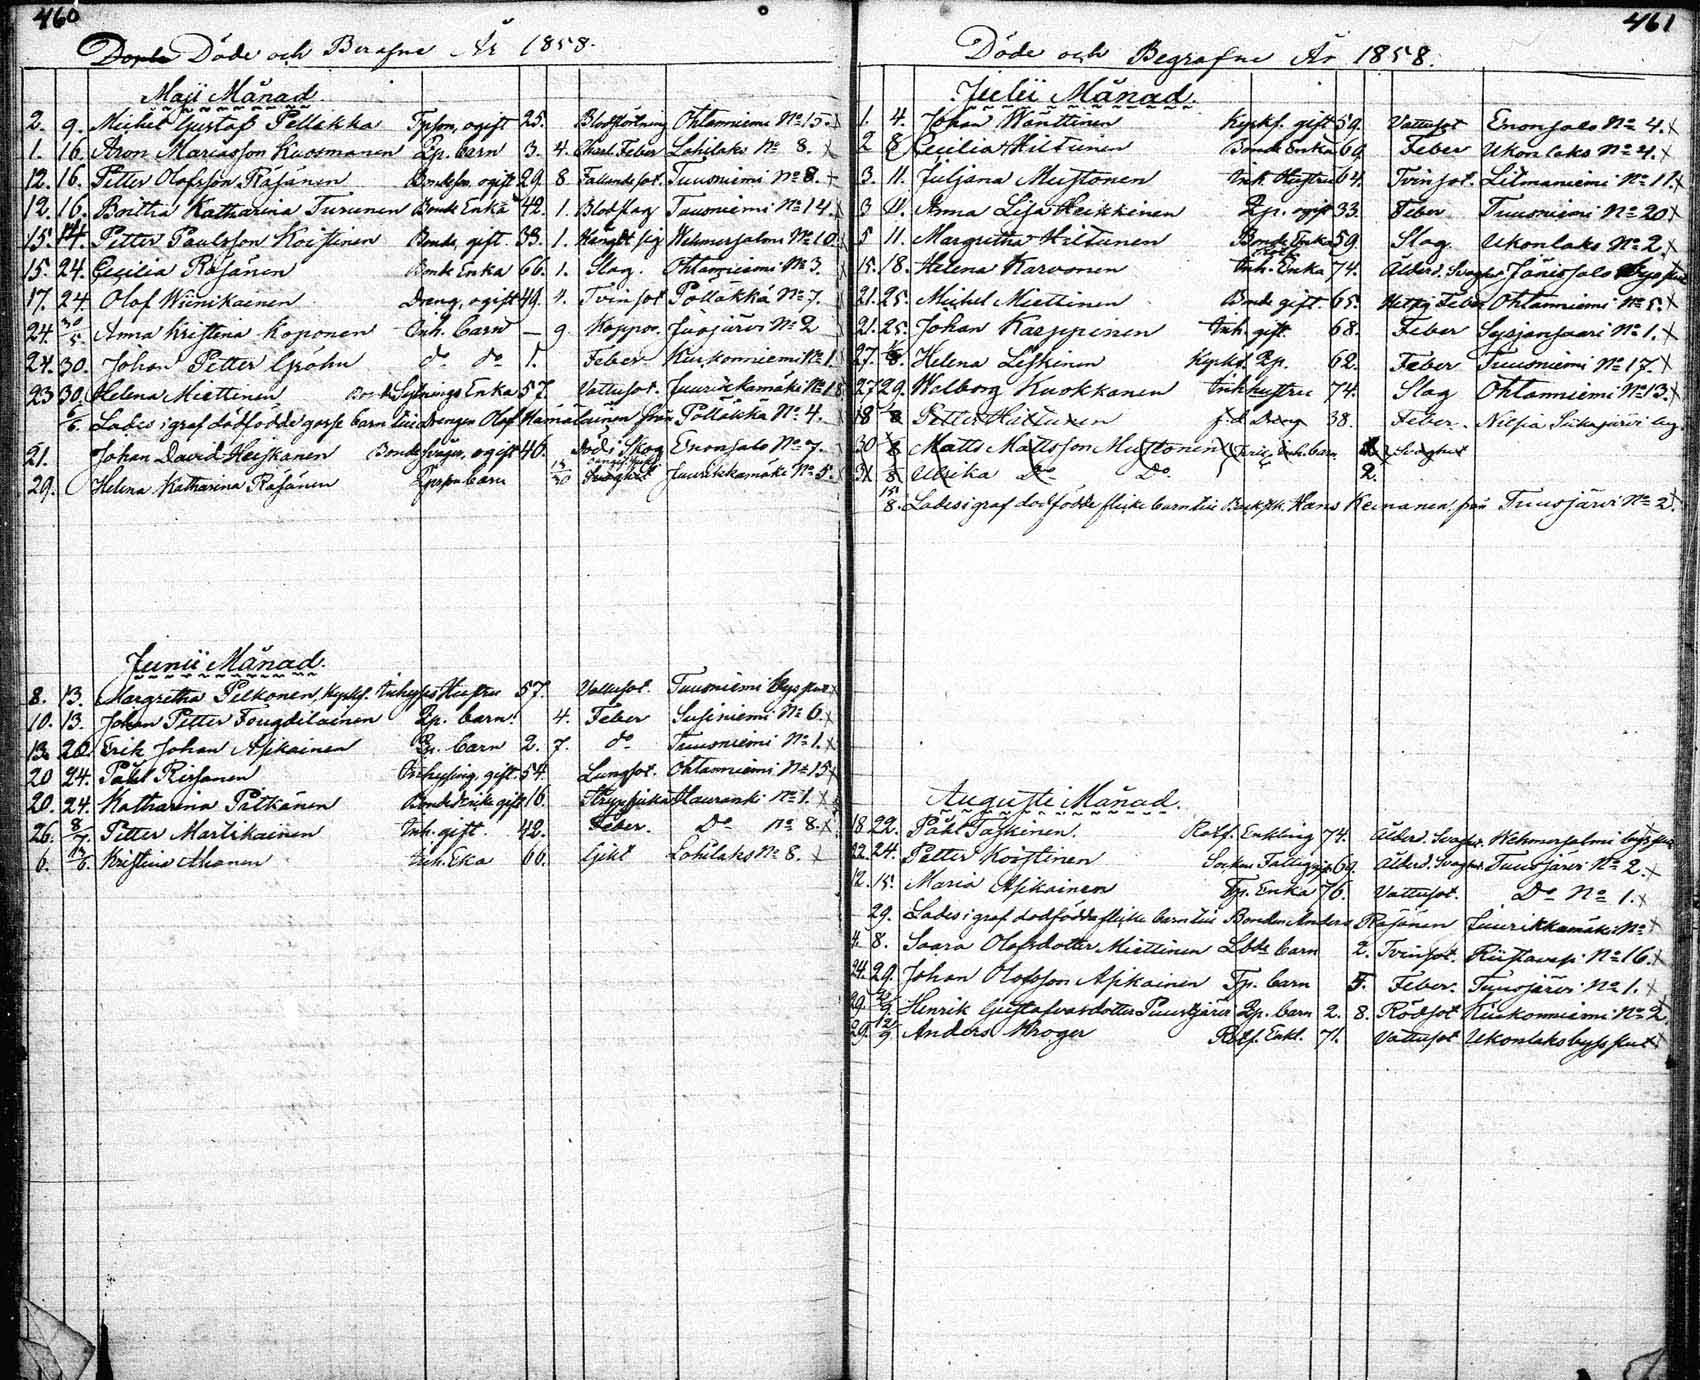 460
Döpte Döde och Berafne År 1858.
Maji Månad.
2. 9. Michel Gustaf Pellakka Tpson, ogift 25. Blodstörtning Ohtanniemi No 15.
1. 16. Aron Mariasson Kuosmanen Lp. barn 3. 4. Skarl. Feber Lohilaks No 8.
12. 16. Petter Olofsson Räsänen Bondeson, ogift 29. 8 Fallandesot. Tuusniemi No 8.
12. 16. Britha Katharina Turunen Bonde Enka 42. 1. Blodslag Tuusniemi No 14.
15. 14/7. Petter Paulsson Koistinen Bonde, gift. 33. 1. Hängdt sig Wehmersalmi No 10
15. 24. Cecilia Räsänen Bonde Enka 66. 1. Slag. Ohtanniemi No 3.
17. 24. Olof Wänikainen Dreng, ogift 49. 4. Tvinsot Pölläkkä No 7.
24. 30/5. Anna Kristina Koponen Inh. barn – 9 Koppor. Juojärvi No 2
24. 30. Johan Petter Gröhn do do 1. Feber Kurkonniemi No 1.
23 30. Helena Miettinen Enka 57. Vattusot. Juurikkamäki No 18
6/6. Lades i graf dödfödde gosse barn till drengen Olof Hämäläinen från Pölläkkä No 4.
21. Johan David Heiskanen Bonde måger, ogift 46. död i Skog Enonsalo No 7.
29. Helena Katharina Räsänen barn 13/30 Juurikkamäki No 5.
Junii Månad.
8. 13. Margretha Pelkonen, Kypkf. Inhyses Hustru 57. Vattusot. Tuusniemi bys
10. 13. Johan Petter Fougdilainen Lp. barn. 4. Feber Susiniemi No 6.
13 20. Erik Johan Asikainen barn 2. 7. do Tuusniemi No 1.
20 24. Påhl Rissanen Inhysing, gift. 54. Lungsot. Ohtanniemi No 15
20. 24. Katharina Pitkänen gift 16. Strypsjuka Hauranki No 1.
26. 8/7. Petter Martikainen Inh. gift. 42. Feber. Do No 8.
6. 13/6. Kristina Ahonen Inh. Eka 66. Gikt Lohilaks No 8.
461
Döde och Begrafne År 1858.
Julii Månad.
1. 4. Johan Wänttinen Kypkf. gift 59. Vattusot Enonsalo No 4.
2 8 Cecilia Hiltunen Bonde Enka 69. Feber Ukonlaks No 4.
3. 11. Juljana Mustonen Inh. Hustru 64. Tvinsot. Litmaniemi No 11.
3 11. Anna Lisa Heikkinen Lp. ogift 33. Feber Tuusniemi No 20
5 11. Margretha Hiltunen Bonde Enka 59. Slag Ukonlaks No 2.
15. 18. Helena Karvonen Inh. Enka 74. Ålderd. Svaghet Jänissalo
21. 25. Michel Miettinen Bonde gift. 65. Hettsig Feber Ohtanniemi No 5.
21. 25. Johan Karppinen Inh. gift. 68. Feber Syrjansaari No 1.
27. 1/8. Helena Liskinen Kypkf. Lp. 62. Feber Tuusniemi No 17.
27 29. Walborg Kuokkanen Inh. hustru 74. Slag Ohtanniemi No 13.
18 1/8 Petter Hiltunen f. d. Dreng 38. Feber. Nilsiä
30 1/8 Matts Mattsson Mustonen Inh. barn Svaghet
31 1/8 Ulrika Do Do 2.
15/8. Lades i graf dödfödde flicke barn till Hans Keinanen från Tuusjärvi No 2.
Augusti Månad.
18 22. Påhl Taskinen. Rotf. Enkling 74. Ålderd. Svaghet. Wehmersalmi
22. 24. Petter Koistinen Socken Fattig 69. Ålderd. Svaghet. Tuusjärvi No 2.
12. 15. Maria Asikainen Tp. Enka 76. Vattusot. Do No 1.
29. Lades i graf dödfödda flicke barn till Bonden Anders Räsänen Juurikkamäki No
4. 8. Saara Olofsdotter Miettinen Lbde barn 2. Tvinsot. Riistavesi No 16.
24. 29. Johan Olofsson Asikainen Tp. barn 5. Feber. Tuusjärvi No 1.
29. Henrik Gustafvasdotter Puustjärvi Lp. barn 2. 8. Rödsot Kurkonniemi No 2.
29. 12/9. Anders Kroger Rotf. Enkl. 71. Vattusot Ukonlaks